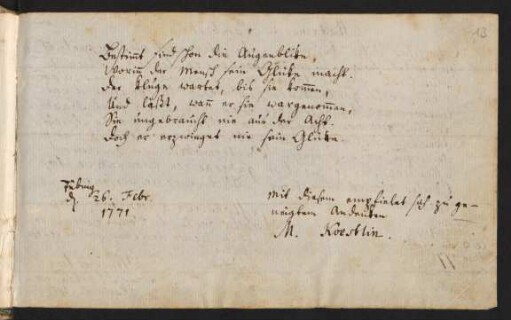 13
Bestimt sind schon die Augenblike,
Worinn der Mensch sein Glüke macht.
Der kluge wartet, bis sie kommen,
Und läßt, wann er sie wargenommen,
Sie ungebraucht nie aus der Acht.
Doch er erzwinget nie sein Glüke.
Tübing.
d. 26. Febr.
1771.
Mit diesem empfielet sich zu ge-
neigtem Andenken
M. Koestlin.